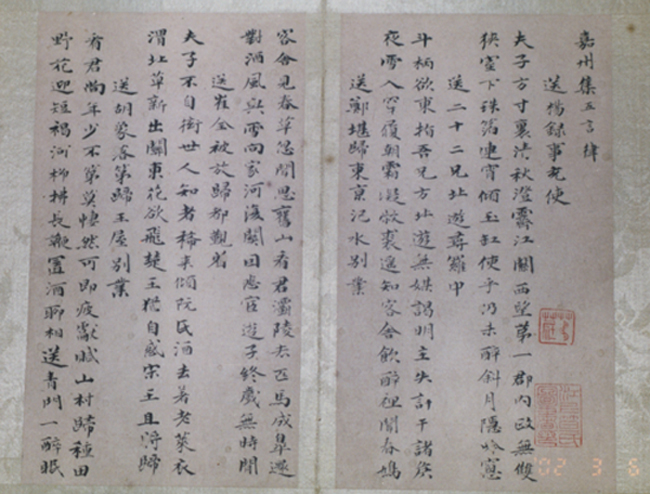 嘉州集五言律
送楊錄事充使
夫子方寸裏清秋澄霽江關西望第一郡內政無雙
狹室下珠箔連宵傾玉缸使乎仍未醉斜月隱吟窓
送二十二兄北遊尋羅中
斗柄欲東指吾兄方北遊無媒謁明主失計干諸侯
夜雪入穿履朝霜凝敝裘遥知客舍飲醉裡聞春鳩
送鄭堪歸東京汜水別業
客舍見春草忽聞思舊山看君灞陵去匹馬成皐還
對酒風與雪向家河復關因悲宦遊子終歲無時閒
送崔全被放歸都覲省
夫子不自衒世人知者稀來傾阮氏酒去著老萊衣
渭北草新出關東花欲飛楚王猶自惑宋玉且將歸
送胡象落第歸王屋別業
看君尚年少不第莫悽然可即疲獻賦山村歸種田
野花迎短褐河柳拂長鞭置酒聊相送青門一醉眠
'02 3 6